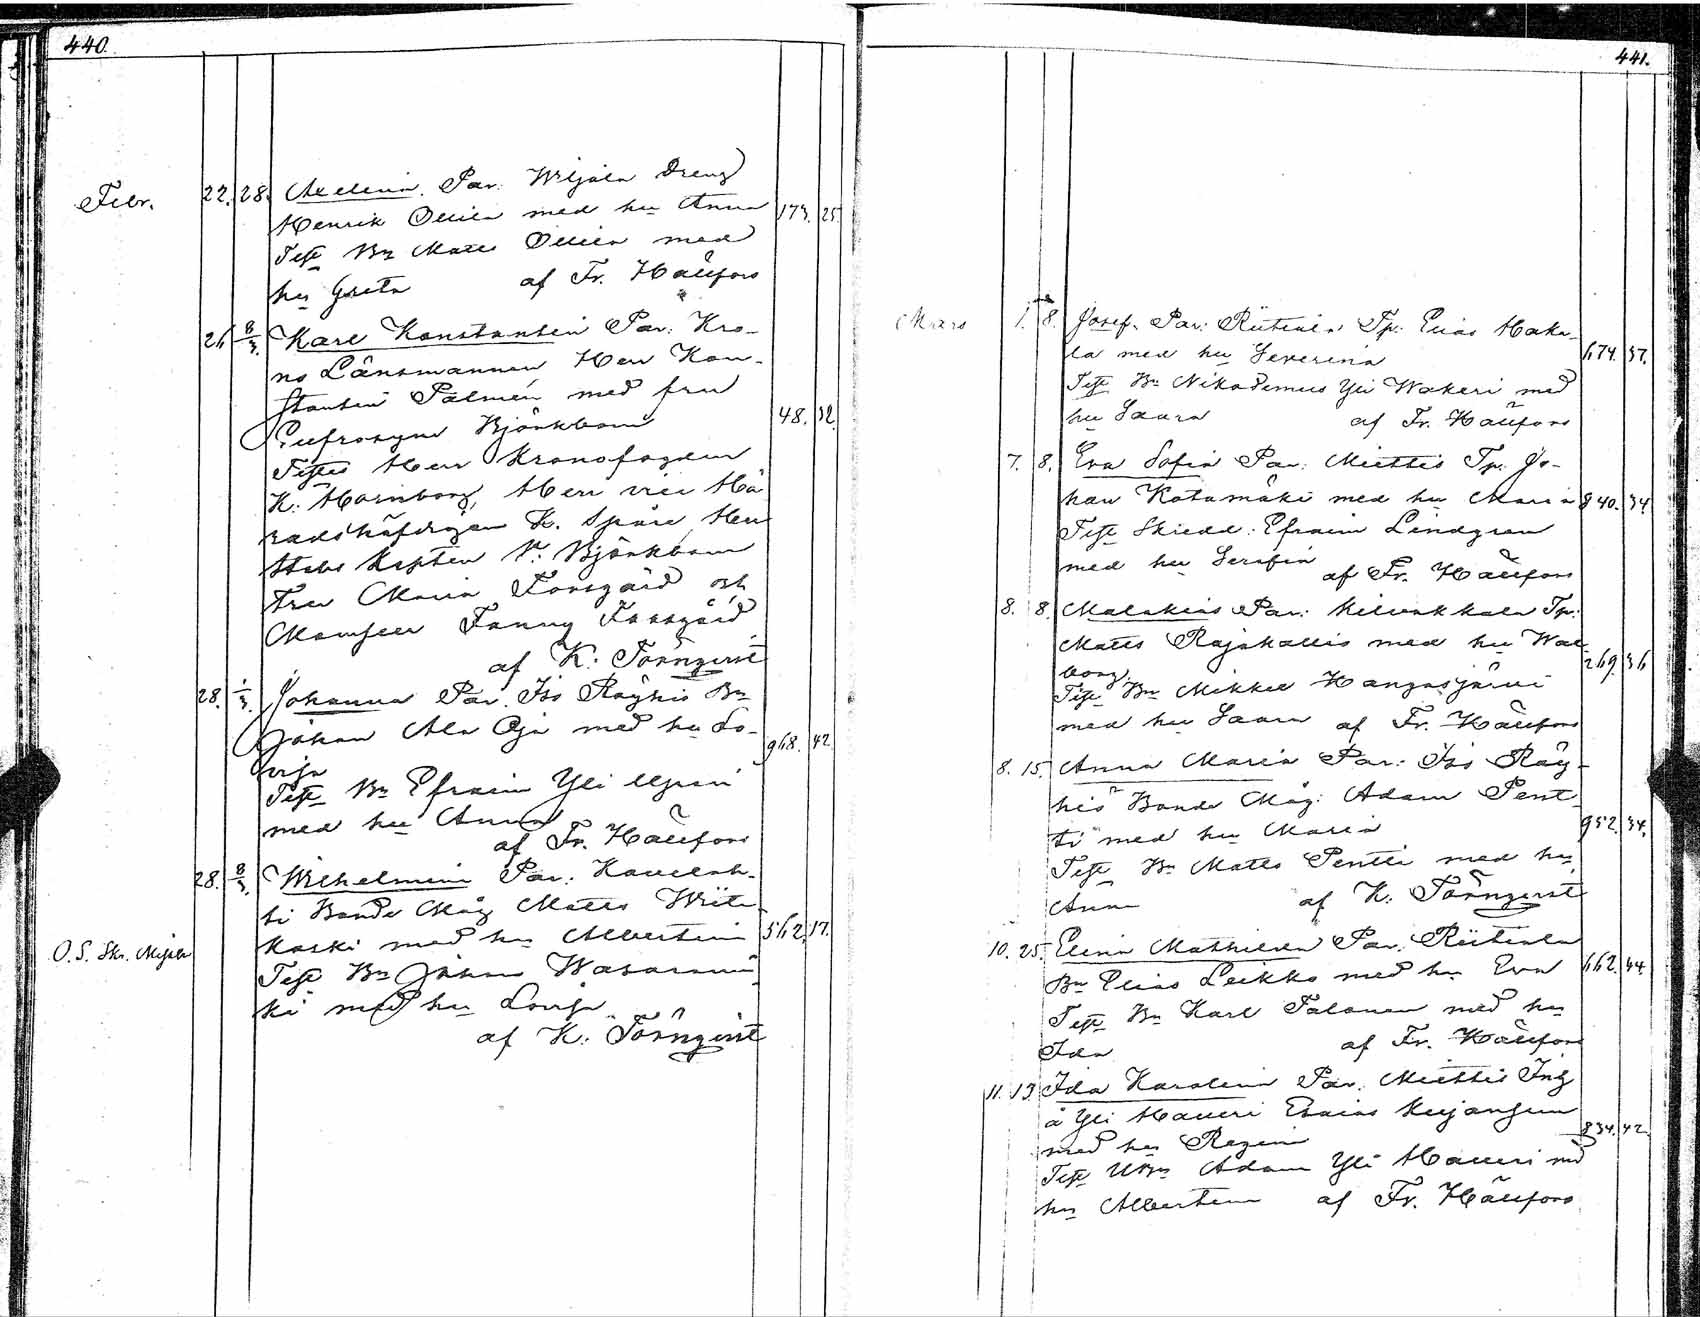 440.
Febr. 22. 28. Axelina. Par: Wiljala Dreng
Henrik Ollila med hu Anna 173. 25.
Test Bn Matts Ollila med
hu Greta af Fr. Hällfors
26 8/3. Karl Konstantin Par: Kro-
no Länsmannen Herr Kon-
stantin Palmén med fru
Eufrosyne Björkbom 48. 32.
Testes Herr Kronofogden
K. Hornborg, Herr vice Hä
radshöfdigen K. Spåre Herr
Stabs Kapten V. Björkbom
Fru Maria Forsgård och
Mamsell Fanny Forsgård
af K: Törnqvist
28. 1/3. Johanna Par. Iso Röyhiö Bn
Johan Ala Oja med hu Lo- 968. 42
visa
Test Bn Efraim Yli
med hu Anna
af Fr. Hällfors
28. 8/3. Wilhelmina Par: Kauvat-
si Bonde Måg Matts
koski med hu Albertina 562. 17.
O. S. Skr. Test Bn Johan
ki med hu Lovisa
af K: Törnqvist
441.
Mars 1. 8. Josef. Par: Riitiala Tp: Elias Hake-
la med hu Severina 674. 37.
Test Bn Nikodemus Yli Wakeri med
hu Saara af Fr. Hällfors
7. 8. Eva Sofia Par: Miettis Tp: Jo-
han Katamäki med hu Maria 840. 34
Test Skredd: Efraim Lindgren
med hu Serafia af Fr. Hällfors
8. 8. Malakias Par: Kilvakkala Tp:
Matts Rajakallio med hu Wal 269. 36
borg.
Test Bn Mikkel Kangasjärvi
med hu Saara af Fr. Hällfors
8. 15. Anna Maria Par: Iso Röy-
hiö Bonde Måg: Adam Pent
ti med hu Maria 952. 34.
Test Bn Matts Pentti med hu
Anna af K: Törnqvist
10. 25. Elina Mathilda Par: Riitiala
Bn Elias Leikko med hu Eva 662. 44
Test Bn Karl Talonen med hu
Ida af Fr. Hällfors
11. 13. Ida Karolina Par: Miettis Inh
å Yli Haveri Esaias Kujansuu 834. 42.
med hu Regina
Test UBn Adam Yli Haveri md
hu Albertina af Fr. Hällfors